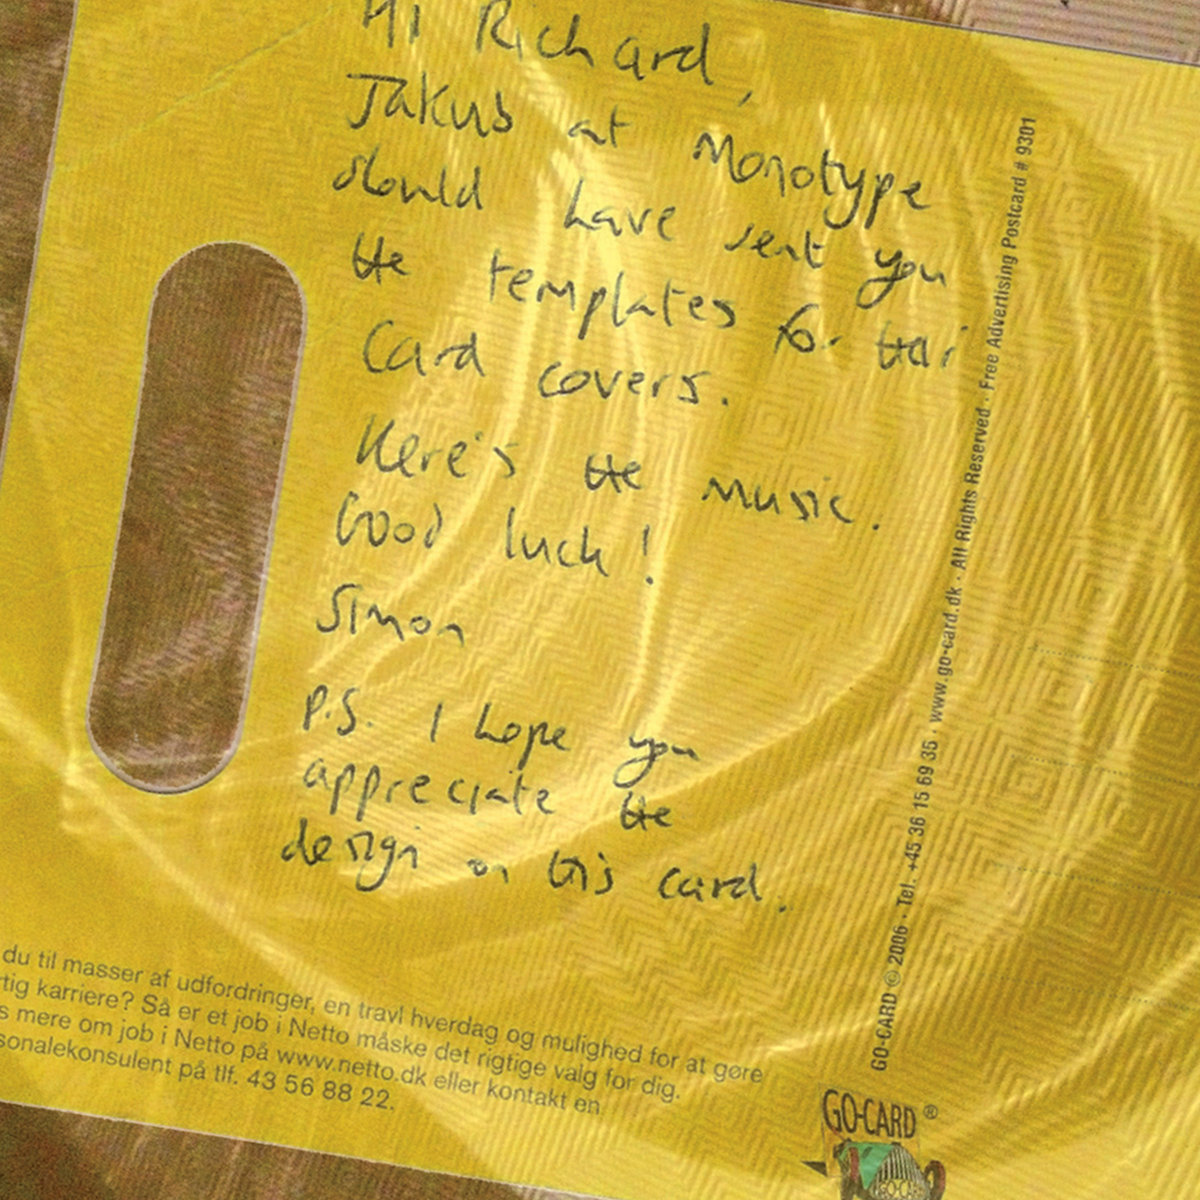 Hi Richard,
Jakub at Monotype
should have sent you
the templates for their
Card covers.
Here's the music.
Good luck!
Simon
P.S. I hope you
appreciate the
design on this card.
du til masser af udfordringer, en travl hverdag og mulighed for at gøre
rtig karriere? Så er et job i Netto måske det rigtige valg for dig.
s mere om job i Netto på www.netto.dk eller kontakt en
sonalekonsulent på tlf. 43 56 88 22.
GO-CARD © 2006 · Tel. +45 36 15 69 35 · www.go-card.dk · All Rights Reserved · Free Advertising Postcard # 9301
GO-CARD ®
GO-CARD